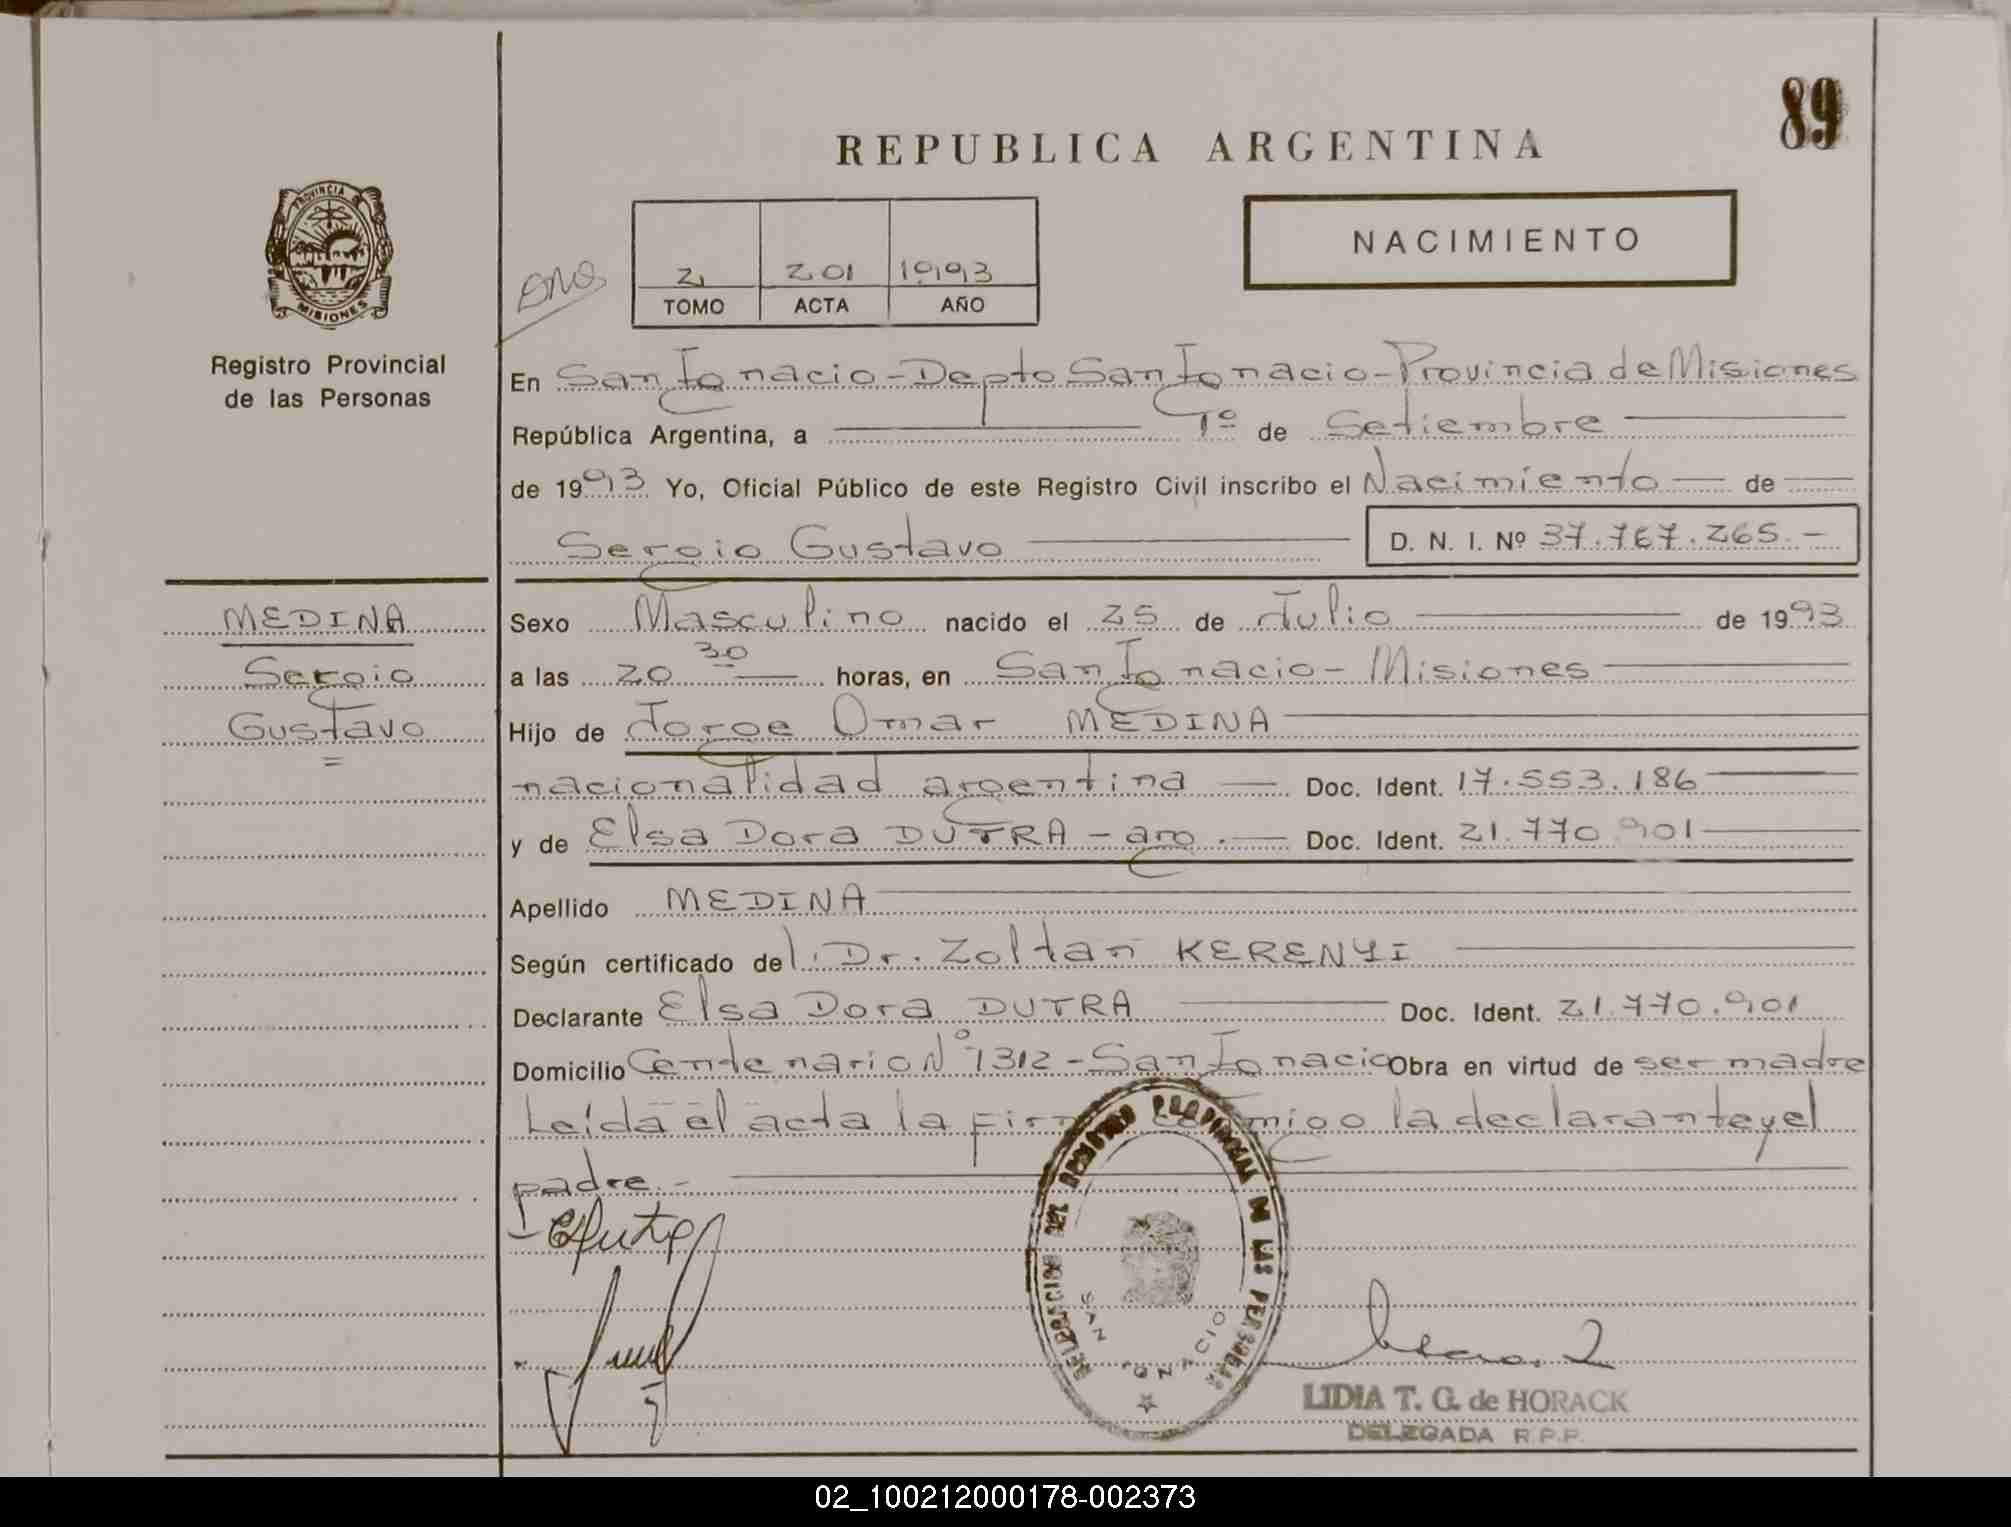 89
REPUBLICA ARGENTINA
PROVINCIA DE
MISIONES
Registro Provincial
de las Personas
2 201 1993
TOMO ACTA AÑO
NACIMIENTO
En San Ignacio - Depto San Ignacio - Provincia de Misiones
República Argentina, a 1º de Setiembre
de 1993 Yo, Oficial Público de este Registro Civil inscribo el Nacimiento de
Sergio Gustavo D. N. I. Nº 37.767.265.-
MEDINA
Sergio
Gustavo
Sexo Masculino nacido el 25 de Julio de 1993
a las 20 30 horas, en San Ignacio - Misiones
Hijo de Jorge Omar MEDINA
nacionalidad argentina Doc. Ident. 17.553.186
y de Elsa Dora DUTRA - arg. Doc. Ident. 21.770.901
Apellido MEDINA
Según certificado del Dr. Zoltan KERENYI
Declarante Elsa Dora DUTRA Doc. Ident. 21.770.901
Domicilio Centenario Nº 1312 - San Ignacio Obra en virtud de ser madre
Leída el acta la firma conmigo la declarante y el
padre.-
DELEGACION DEL REGISTRO PROVINCIAL DE LAS PERSONAS
SAN IGNACIO
LIDIA T. G. de HORACK
DELEGADA R.P.P.
02_100212000178-002373